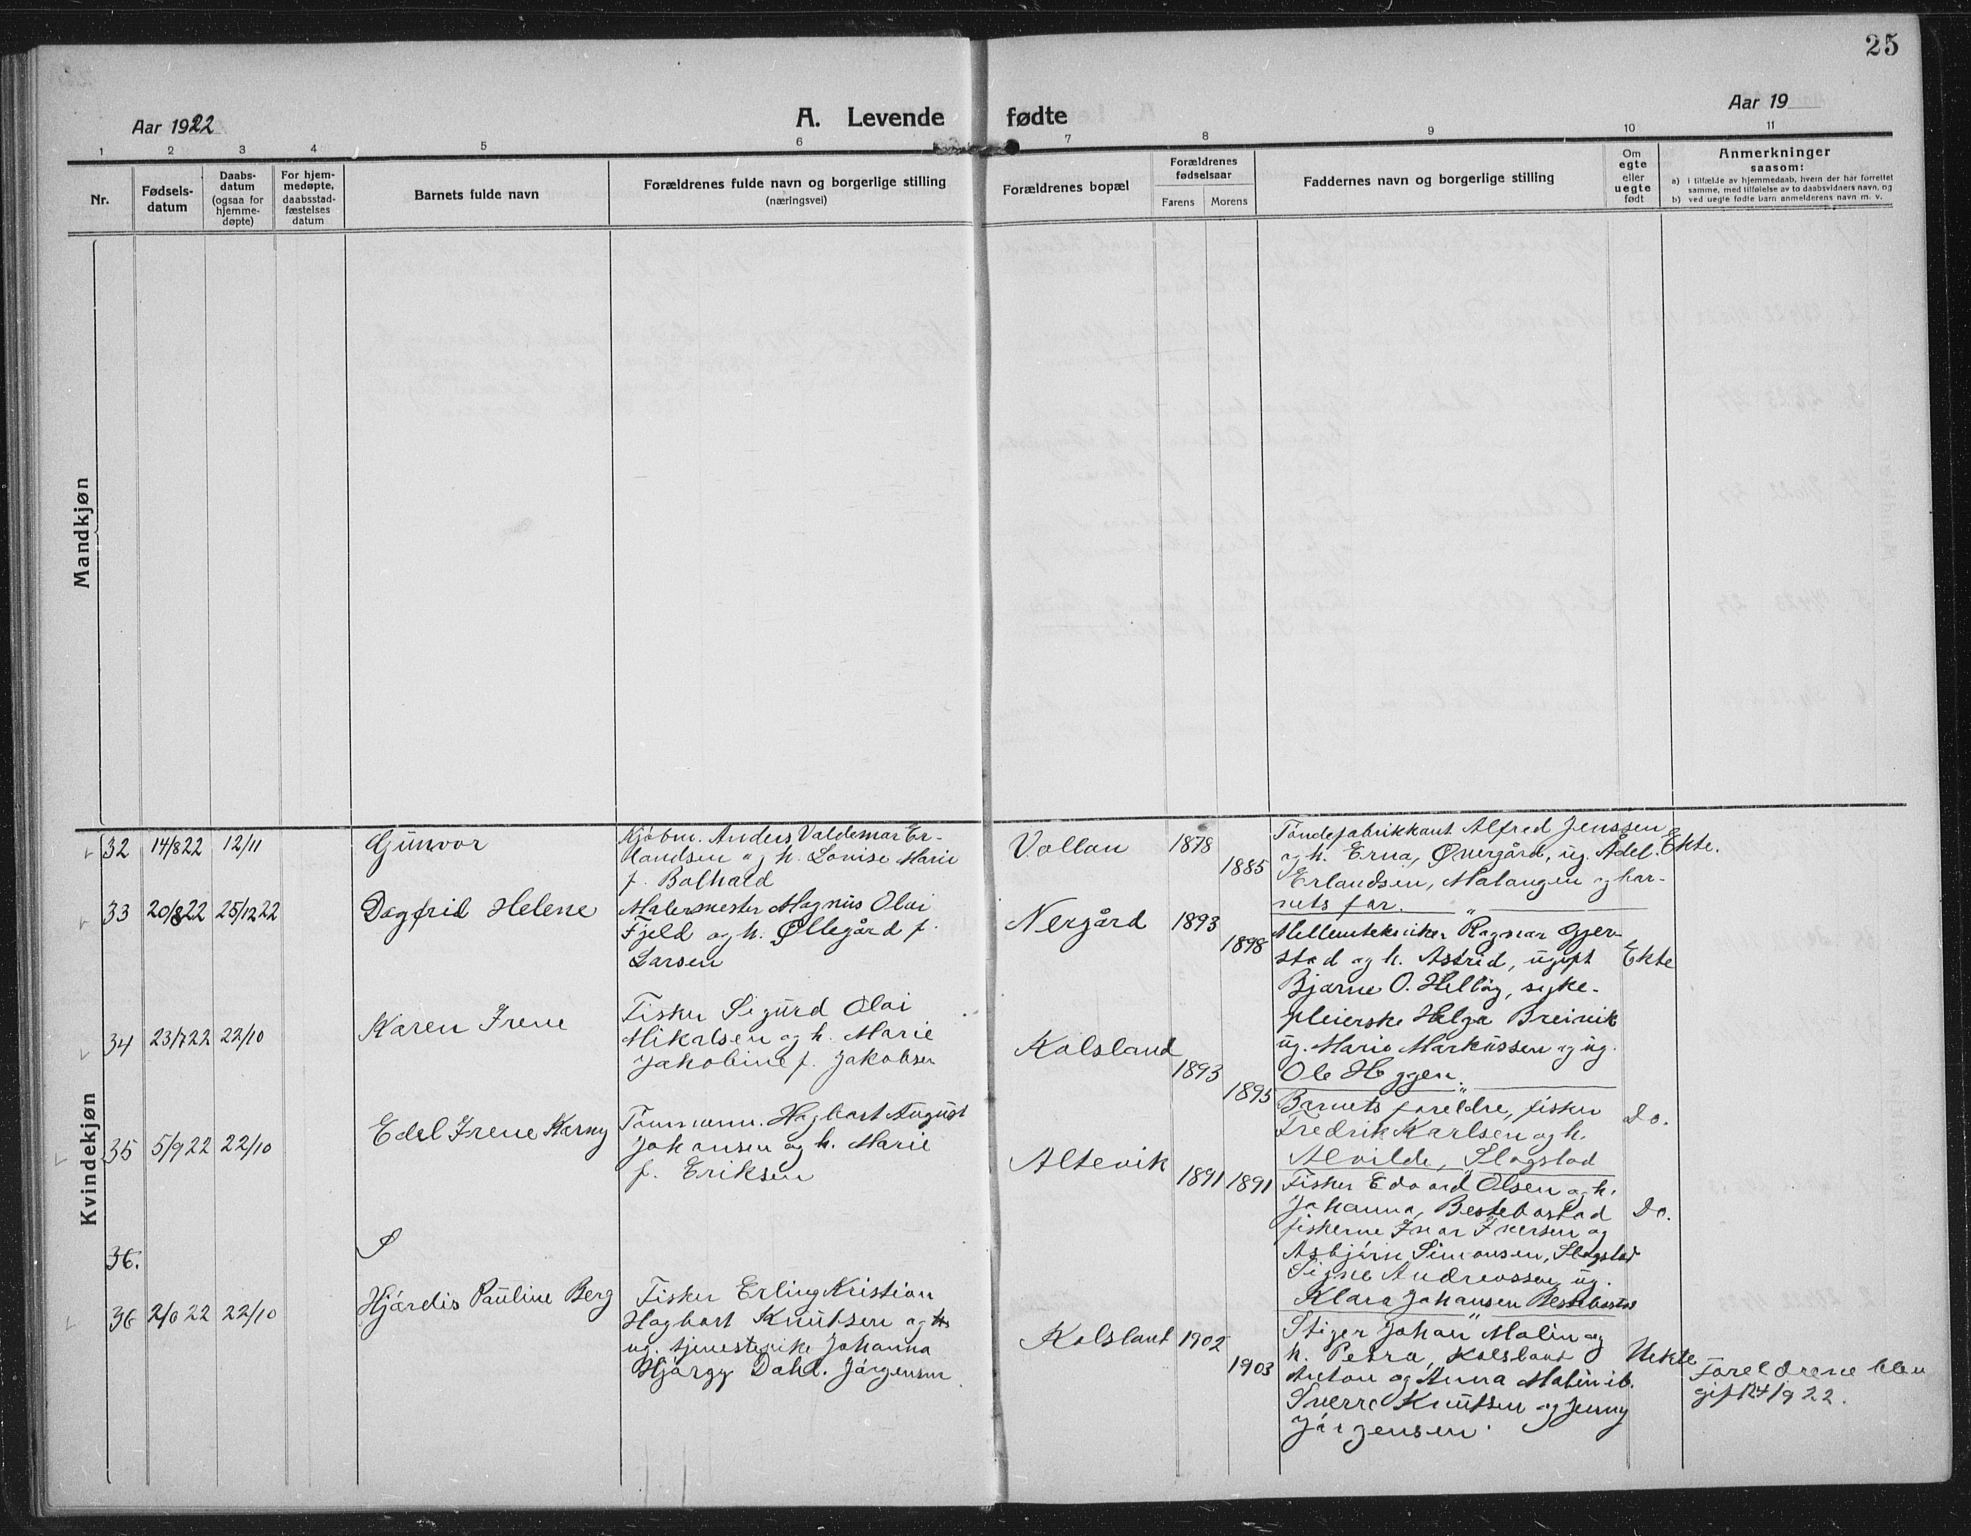 25
Aar 1922
A. Levende fødte
Aar 19
1 2 3 4 5 6 7 8 9 10 11
Nr.
Fødsels-
datum
Daabs-
datum
(ogsaa for
hjemme-
døpte)
For hjem-
medøpte,
daabsstad-
fæstelses
datum
Barnets fulde navn
Forældrenes fulde navn og borgerlige stilling
(næringsvei)
Forældrenes bopæl
Forældrenes
fødselsaar
Farens Morens
Faddernes navn og borgerlige stilling
Om
egte
eller
uegte
født
Anmerkninger
saasom:
a) i tilfælde av hjemmedaab, hvem der har forrettet
samme, med tilføielse av to daabsvidners navn, og
b) ved uegte fødte barn anmelderens navn m. v.
Mandkjøn
Kvindekjøn
32 14/8 22 12/11
Gunvor
Kjøbm. Anders Valdemar Er-
landsen og h. Lovise Marie
f. Bolhald
Vollan
1878
1885
Töndefabrikkant Alfred Jenssen
og h. Erna, Övergård, ug. Adel.
Erlandsen, Malangen og bar-
nets far.
Ekte.
33 20/8 22 25/12 22
Dagfrid Helene
Malermester Magnus Olai
Fjeld og h. Øllegård f.
Larsen
Nergård
1893
1898
Mellemtekniker Ragnar Gjer-
stad og h. Astrid, ugift
Bjarne O. Helläg, syke-
pleierske Helga Breivik
ug. Marie Markussen og ug.
Ole Heggen.
Ekte
34 23/7 22 22/10
Karen Irene
Fisker Sigurd Olai
Mikalsen og h. Marie
Jakobine f. Jakobsen
Kolsland
1893
1895
Barnets foreldre, fisker
Fredrik Karlsen og h.
Alvilde, Slogstad
Do.
35 5/9 22 22/10
Edel Irene Karny
Tömmerm. Hagbart August
Johansen og h. Marie
f. Eriksen
Altevik
1891 1891
Fisker Edvard Olsen og h.
Johanna, Bestebostad
fiskerne Ivar Iversen og
Asbjörn Simonsen, Slogstad
Signe Andreassen, ug.
Klara Johansen Bestebostad
Do.
36.
36 2/6 22 22/10
Hjördis Pauline Berg
Fisker Erling Kristian
Hagbart Knutsen og
ug. tjenestepike Johanna
Hjörgy Dahl. Jörgensen
Kolsland
1902
1903
Stiger Johan Malin og
h. Petra, Kolsland
Anton og Anna Malin ib.
Sverre Knutsen og Jenny
Jörgensen.
Uekte
Foreldrene blev
gift 24/9 22.